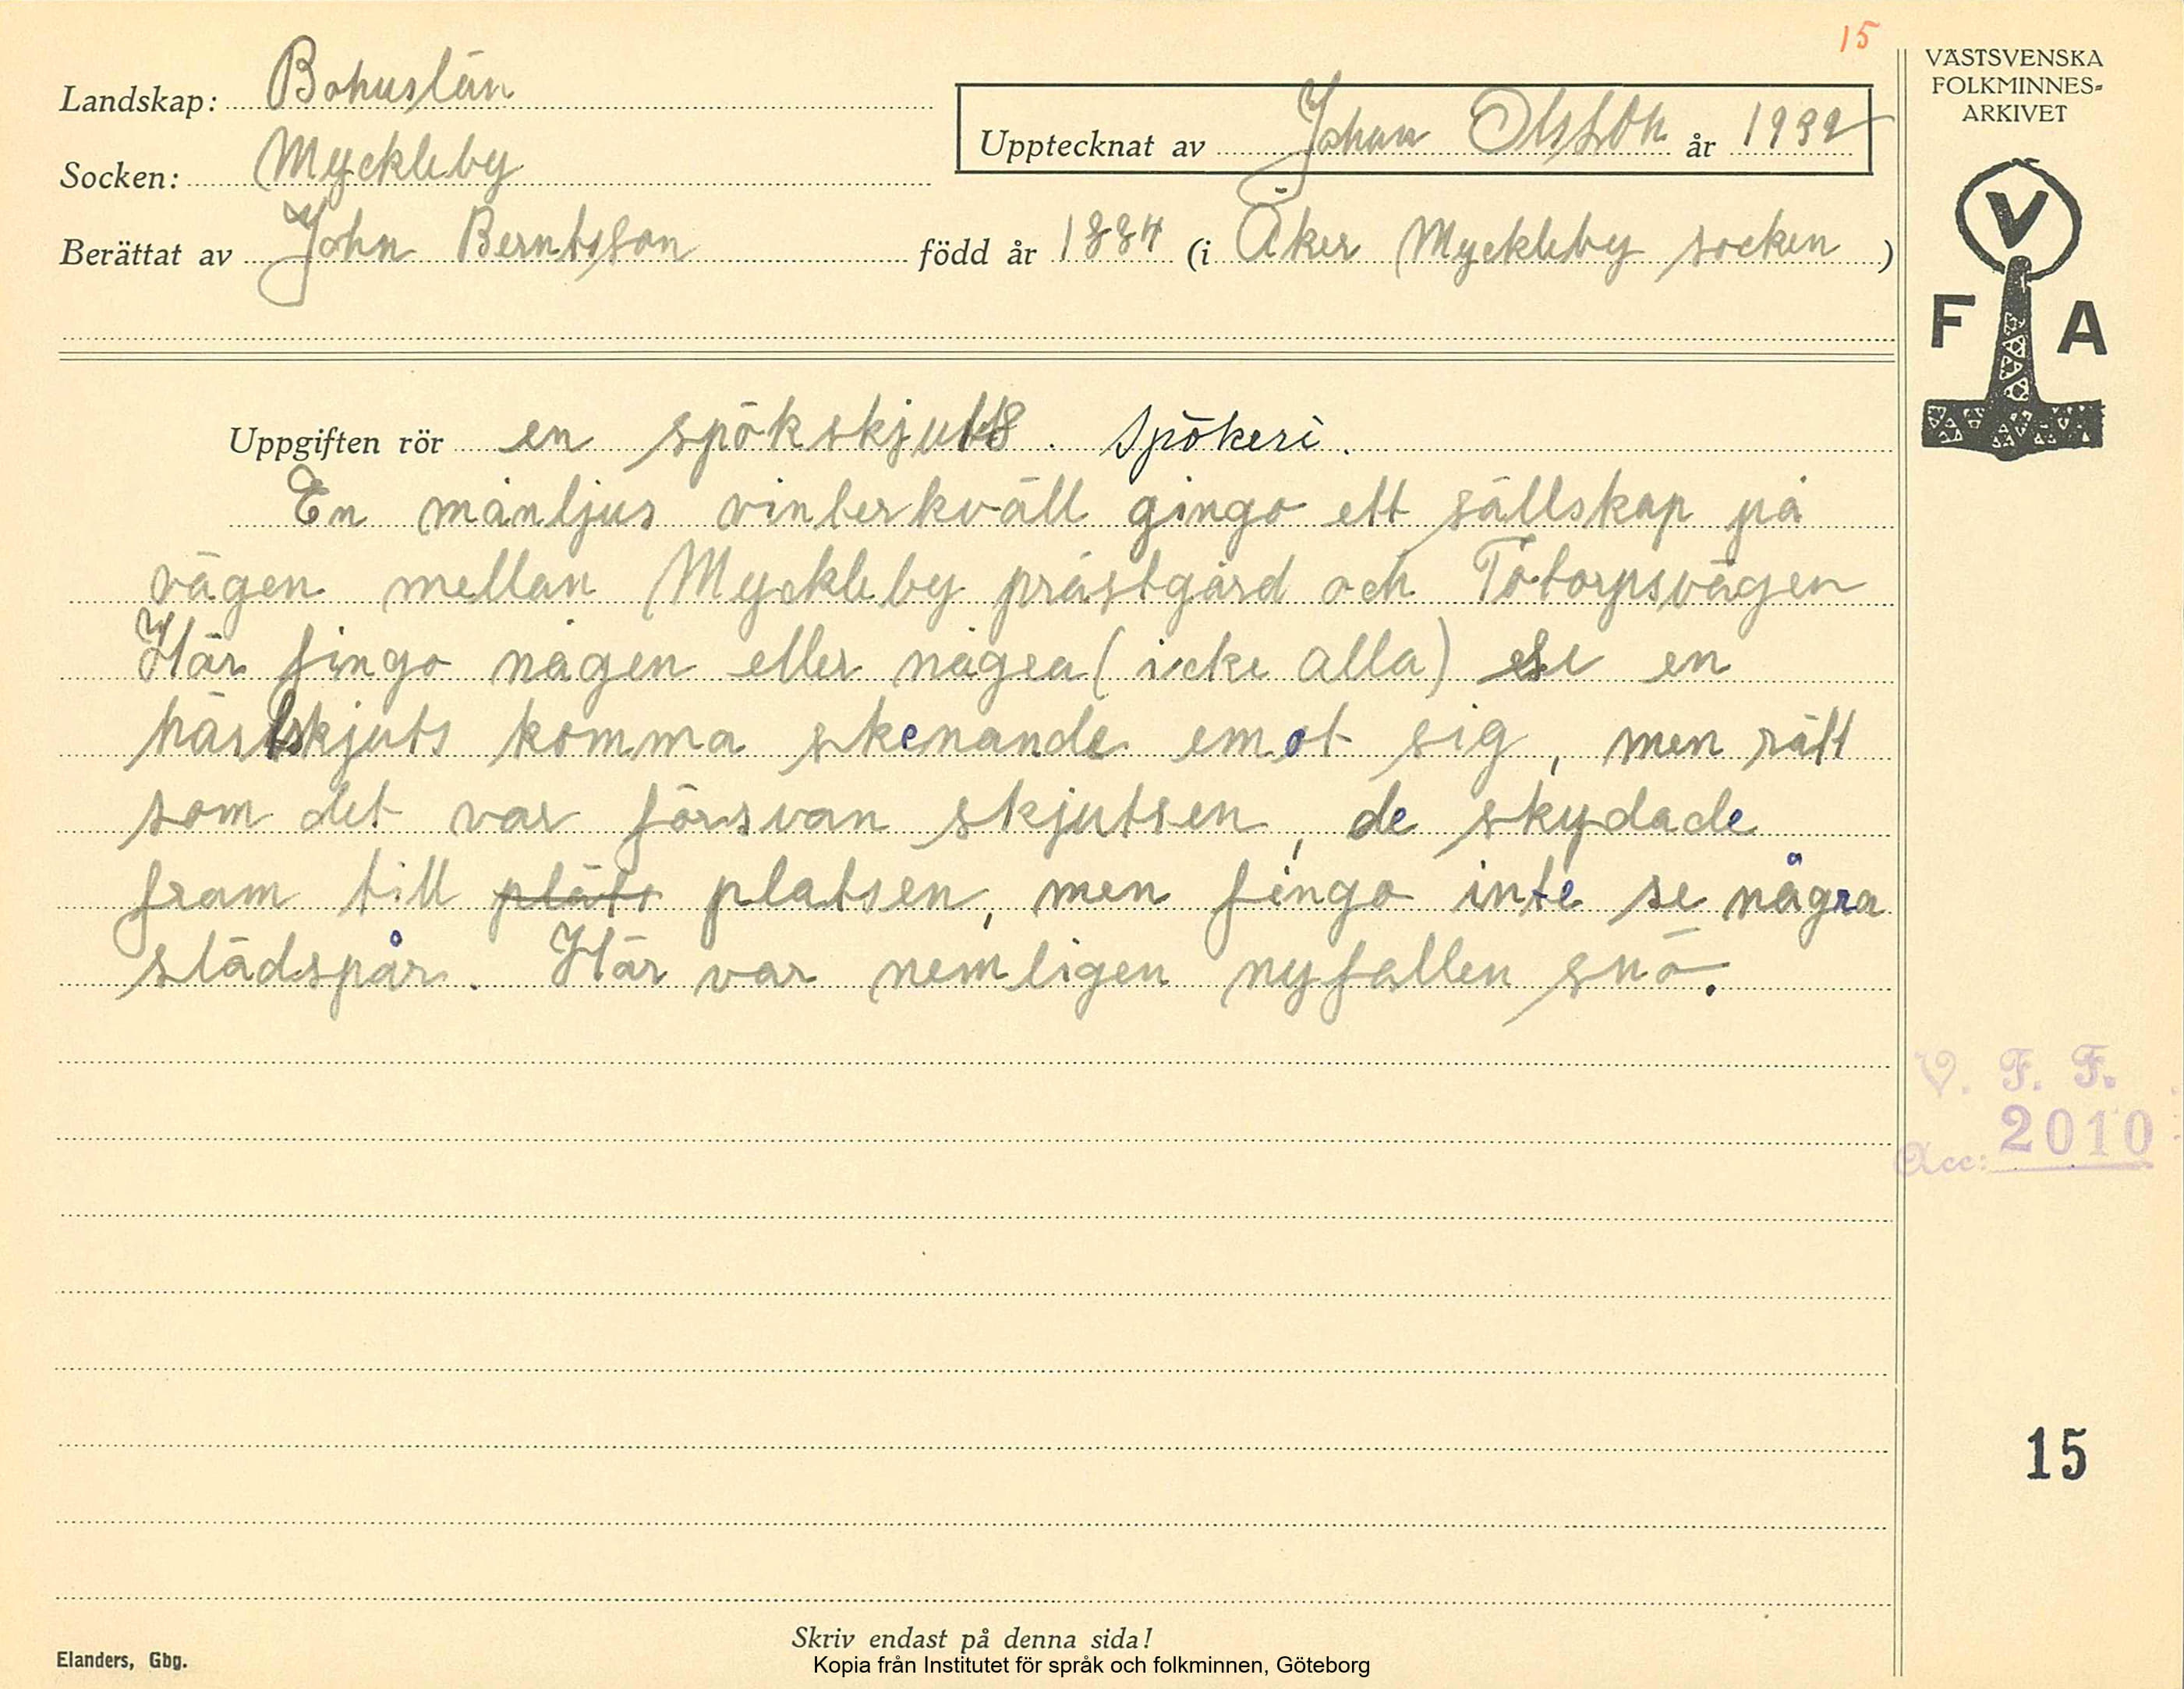 15
Landskap: Bohuslän
Socken: Myckleby
Upptecknat av Johan Olsson år 1932
Berättat av John Berntsson född år 1884 (i Åker Myckleby socken )
Uppgiften rör en spökskjuts. Spökeri.
En månljus vinterkväll gingo ett sällskap på
vägen mellan Myckleby prästgård och Totorpsvägen
Här fingo någen eller någea (icke alla) se en
härskjuts komma skenande emot sig, men rätt
som det var försvan skjutsen, de skydade
fram till plats platsen, men fingo inte se några
slädspår. Här var nemligen nyfallen snö.
VÄSTSVENSKA
FOLKMINNES-
ARKIVET
V
F A
V. F. F.
Acc: 2010
15
Skriv endast på denna sida!
Elanders, Gbg.
Kopia från Institutet för språk och folkminnen, Göteborg